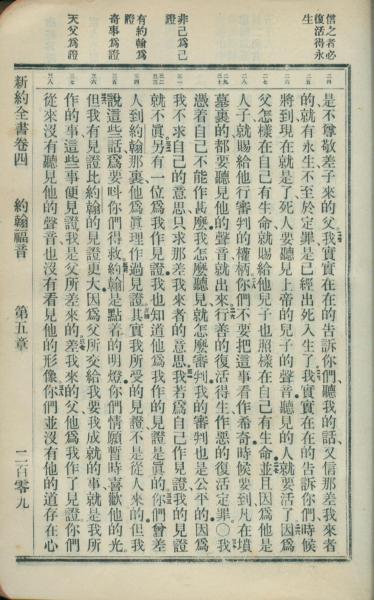 信之者必
復活得永
生
非己爲己
證
有約翰爲
證
奇事爲證
天父爲證
二四
二五
二六
二七
二八
二九
三十
三一
三二
三三
三四
三五
三六
三七
三八
是不尊敬差子來的父我實實在在的告訴你們聽我的話又信那差我來者
的就有永生不至於定罪是已經出死入生了我實實在在的告訴你們時候
將到現在就是了死人要聽見上帝的兒子的聲音聽見的人就要活了因爲
父怎樣在自己有生命就賜給他兒子也照樣在自己有生命並且因爲他是
人子就賜給他行審判的權柄你們不要把這事看作希奇時候要到凡在墳
墓裏的都要聽見他的聲音就出來行善的復活得生作惡的復活定罪○我
憑着自己不能作甚麼我怎麼聽見就怎麼審判我的審判也是公平的因爲
我不求自己的意思只求那差我來者的意思我若爲自己作見證我的見證
就不眞另有一位爲我作見證我也知道他爲我作的見證是眞的你們曾差
人到約翰那裏他爲眞理作過見證其實我所受的見證不是從人來的但我
說這些話爲要呌你們得救約翰是點着的明燈你們情願暫時喜歡他的光
但我有見證比約翰的見證更大因爲父所交給我要我成就的事就是我所
作的事這些事便見證我是父所差來的差我來的父他爲我作了見證你們
從來沒有聽見他的聲音也沒有看見他的形像你們並沒有他的道存在心
新約全書卷四 約翰福音 第五章 二百零九